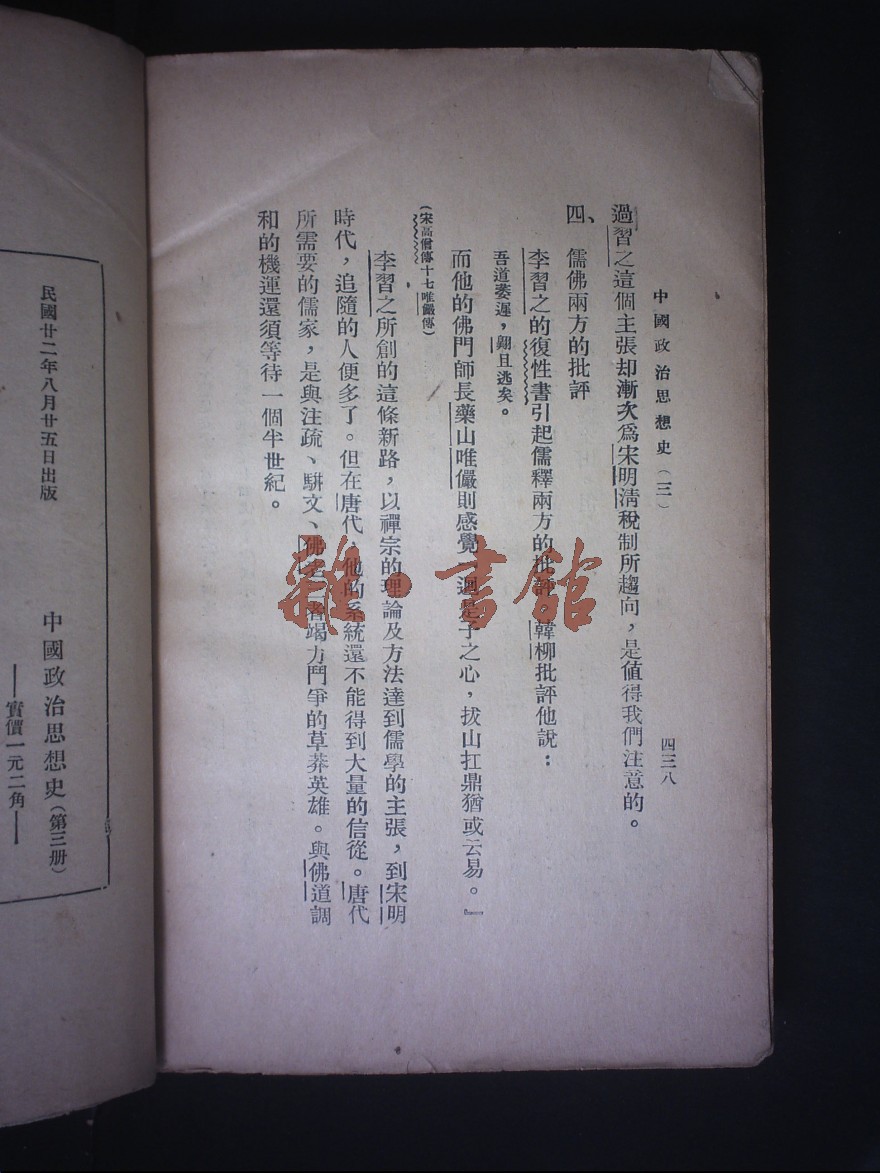 中國政治思想史(三)
四三八
過習之這個主張却漸次爲宋明淸稅制所趨向，是値得我們注意的。
四、 儒佛兩方的批評
李習之的復性書引起儒釋兩方的批評，韓柳批評他說：
吾道萎遲，翺且逃矣。
而他的佛門師長藥山唯儼則感覺，迴是子之心，拔山扛鼎猶或云易。』
(宋高僧傳十七唯儼傳)
李習之所創的這條新路，以禪宗的理論及方法達到儒學的主張，到宋明
時代，追隨的人便多了。但在唐代，他的系統還不能得到大量的信從。唐代
所需要的儒家，是與注疏、駢文、佛老者竭力鬥爭的草莽英雄。與佛道調
和的機運還須等待一個半世紀。
雜·書館
中國政治思想史(第三册)
實價一元二角
民國廿二年八月廿五日出版